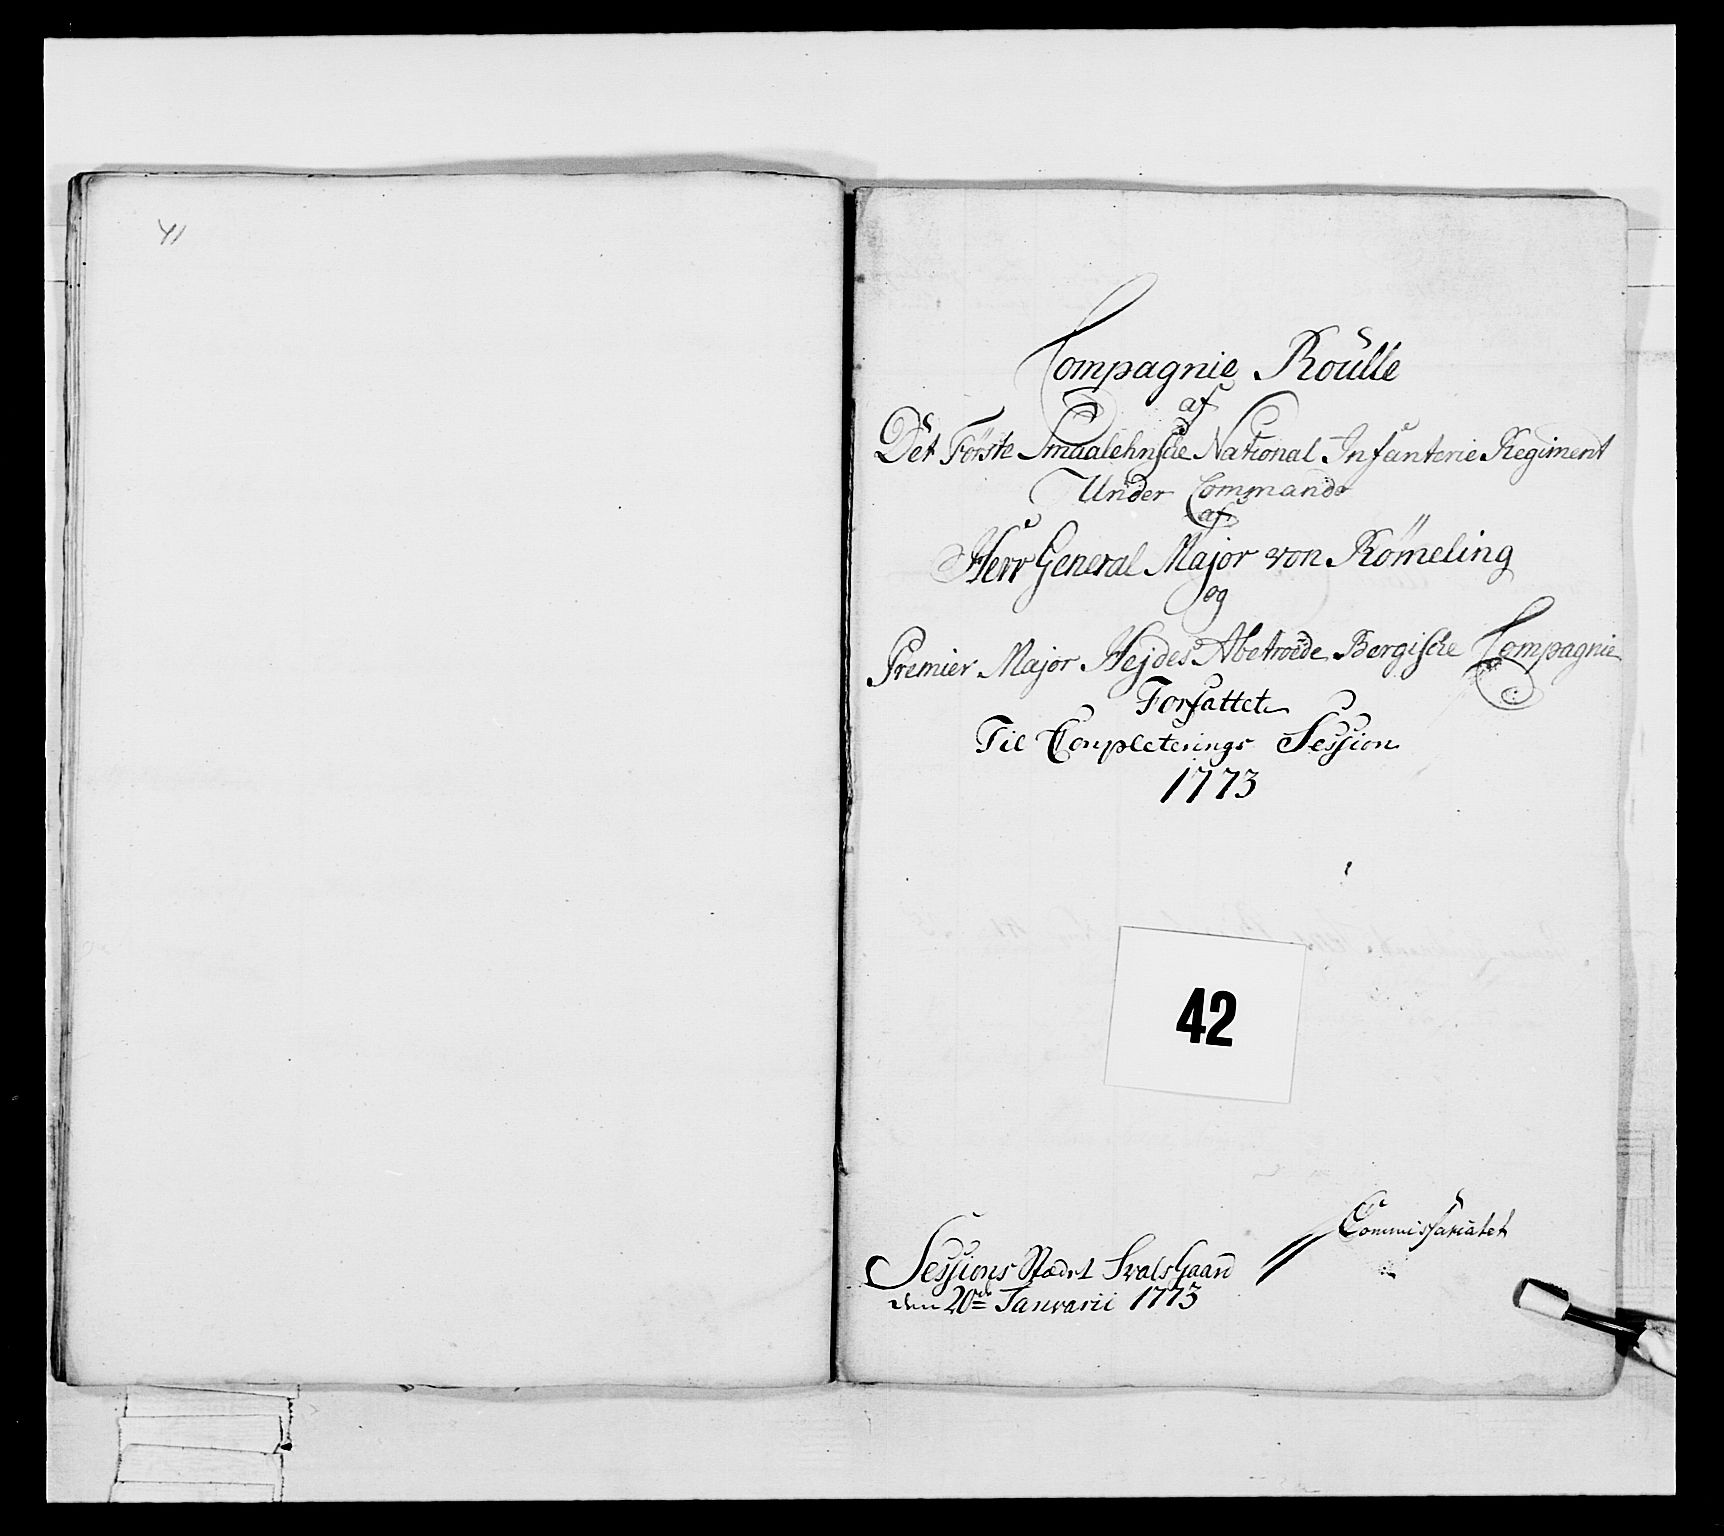 41
Compagnie Roulle
af
Det Förste Smaalehnsche National Infanterie Regiment
Under Commando
af
Herr General Major von Römeling
og
Premier Major Hejdes Abetroede Bergische Compagnie
Forfattet
Til Conpleterings Session
1773
42
Commissariatet
Sessions Stædet SvalsGaard
den 20de Januarii 1773